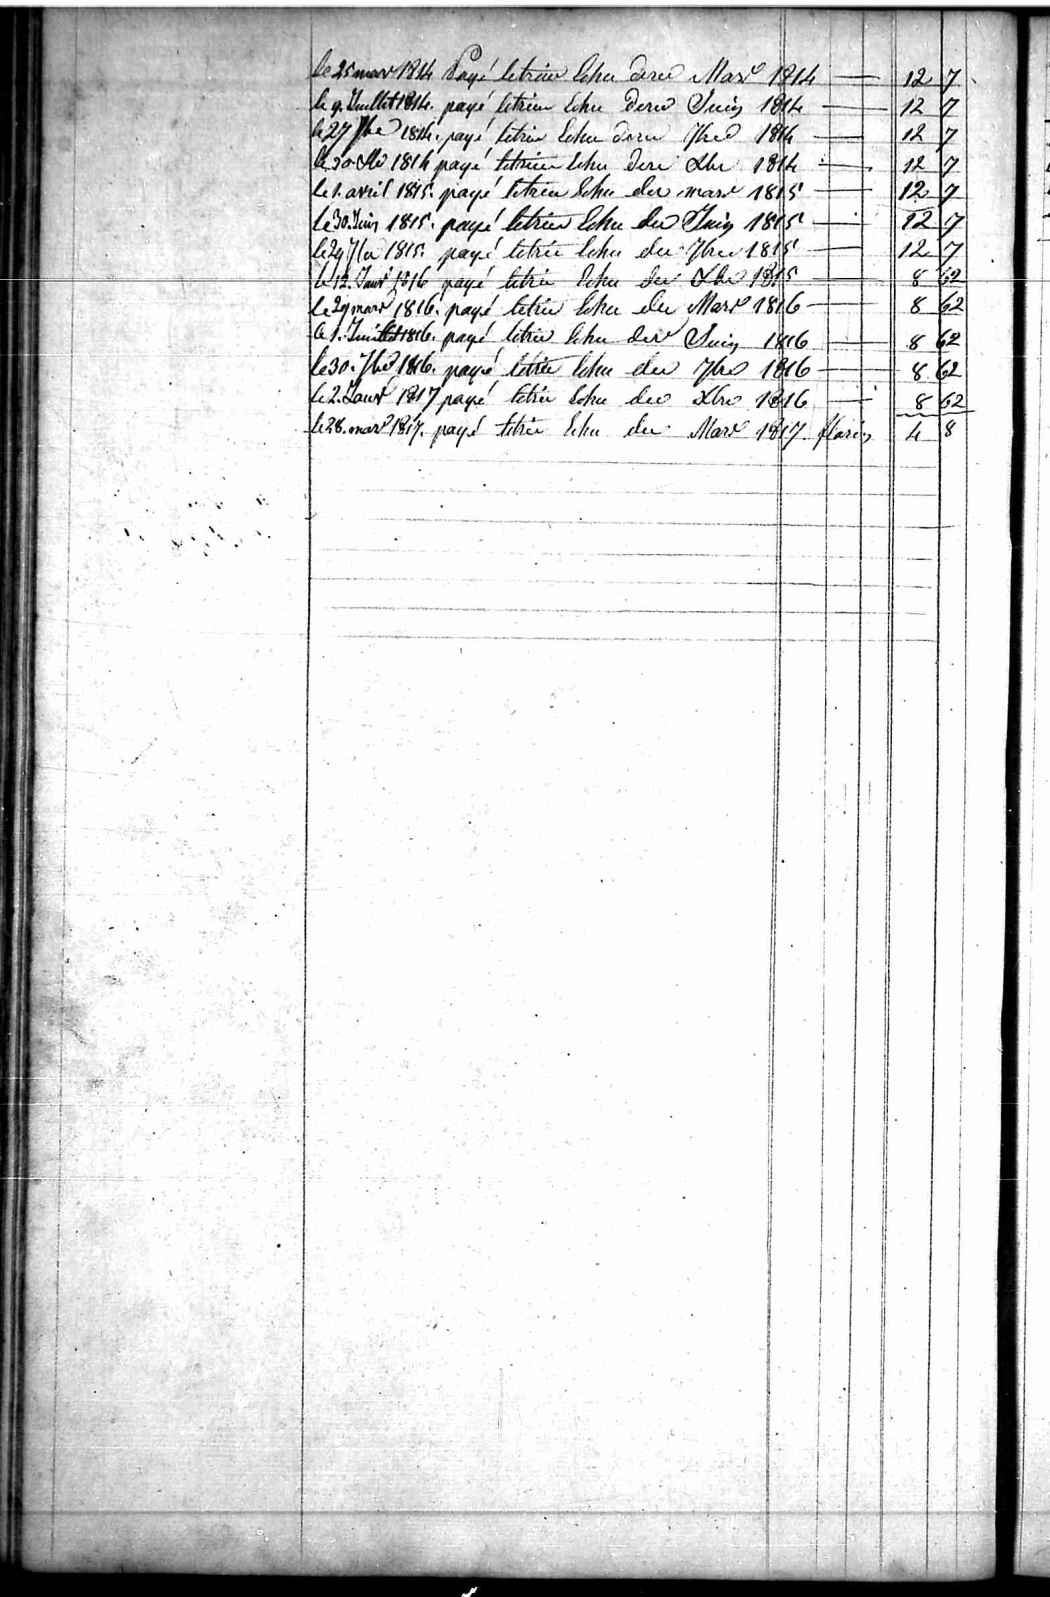 le 25 mars 1814 Payé letrim Echu dere Mars 1814 — 12 7
le 9. Juillet 1814. payé letrim Echu dere Juin 1814 — 12 7
le 27 7bre 1814. payé letrim Echu dere 7bre 1814 — 12 7
le 30 Xbr 1814 payé letrim Echu der Xbr 1814 — 12 7
le 1. avril 1815. payé letrim Echu der mars 1815 — 12 7
le 30. Juin 1815. payé letrim Echu der Juin 1815 — 12 7
le 29 7br 1815. payé letrim Echu der 7bre 1815 — 12 7
le 12. Janvr 1816 payé letrim Echu der Xbr 1815 8 62
le 29 mars 1816. payé letrim Echu der Mars 1816 — 8 62
le 1. Juillet 1816. payé letrim Echu der Juin 1816 — 8 62
le 30. 7bre 1816. payé letrim Echu der 7bre 1816 — 8 62
le 2. Janvr 1817 payé letrim Echu der Xbre 1816 — 8 62
le 28. mars 1817. payé letrim Echu der Mars 1817. florins 4 8